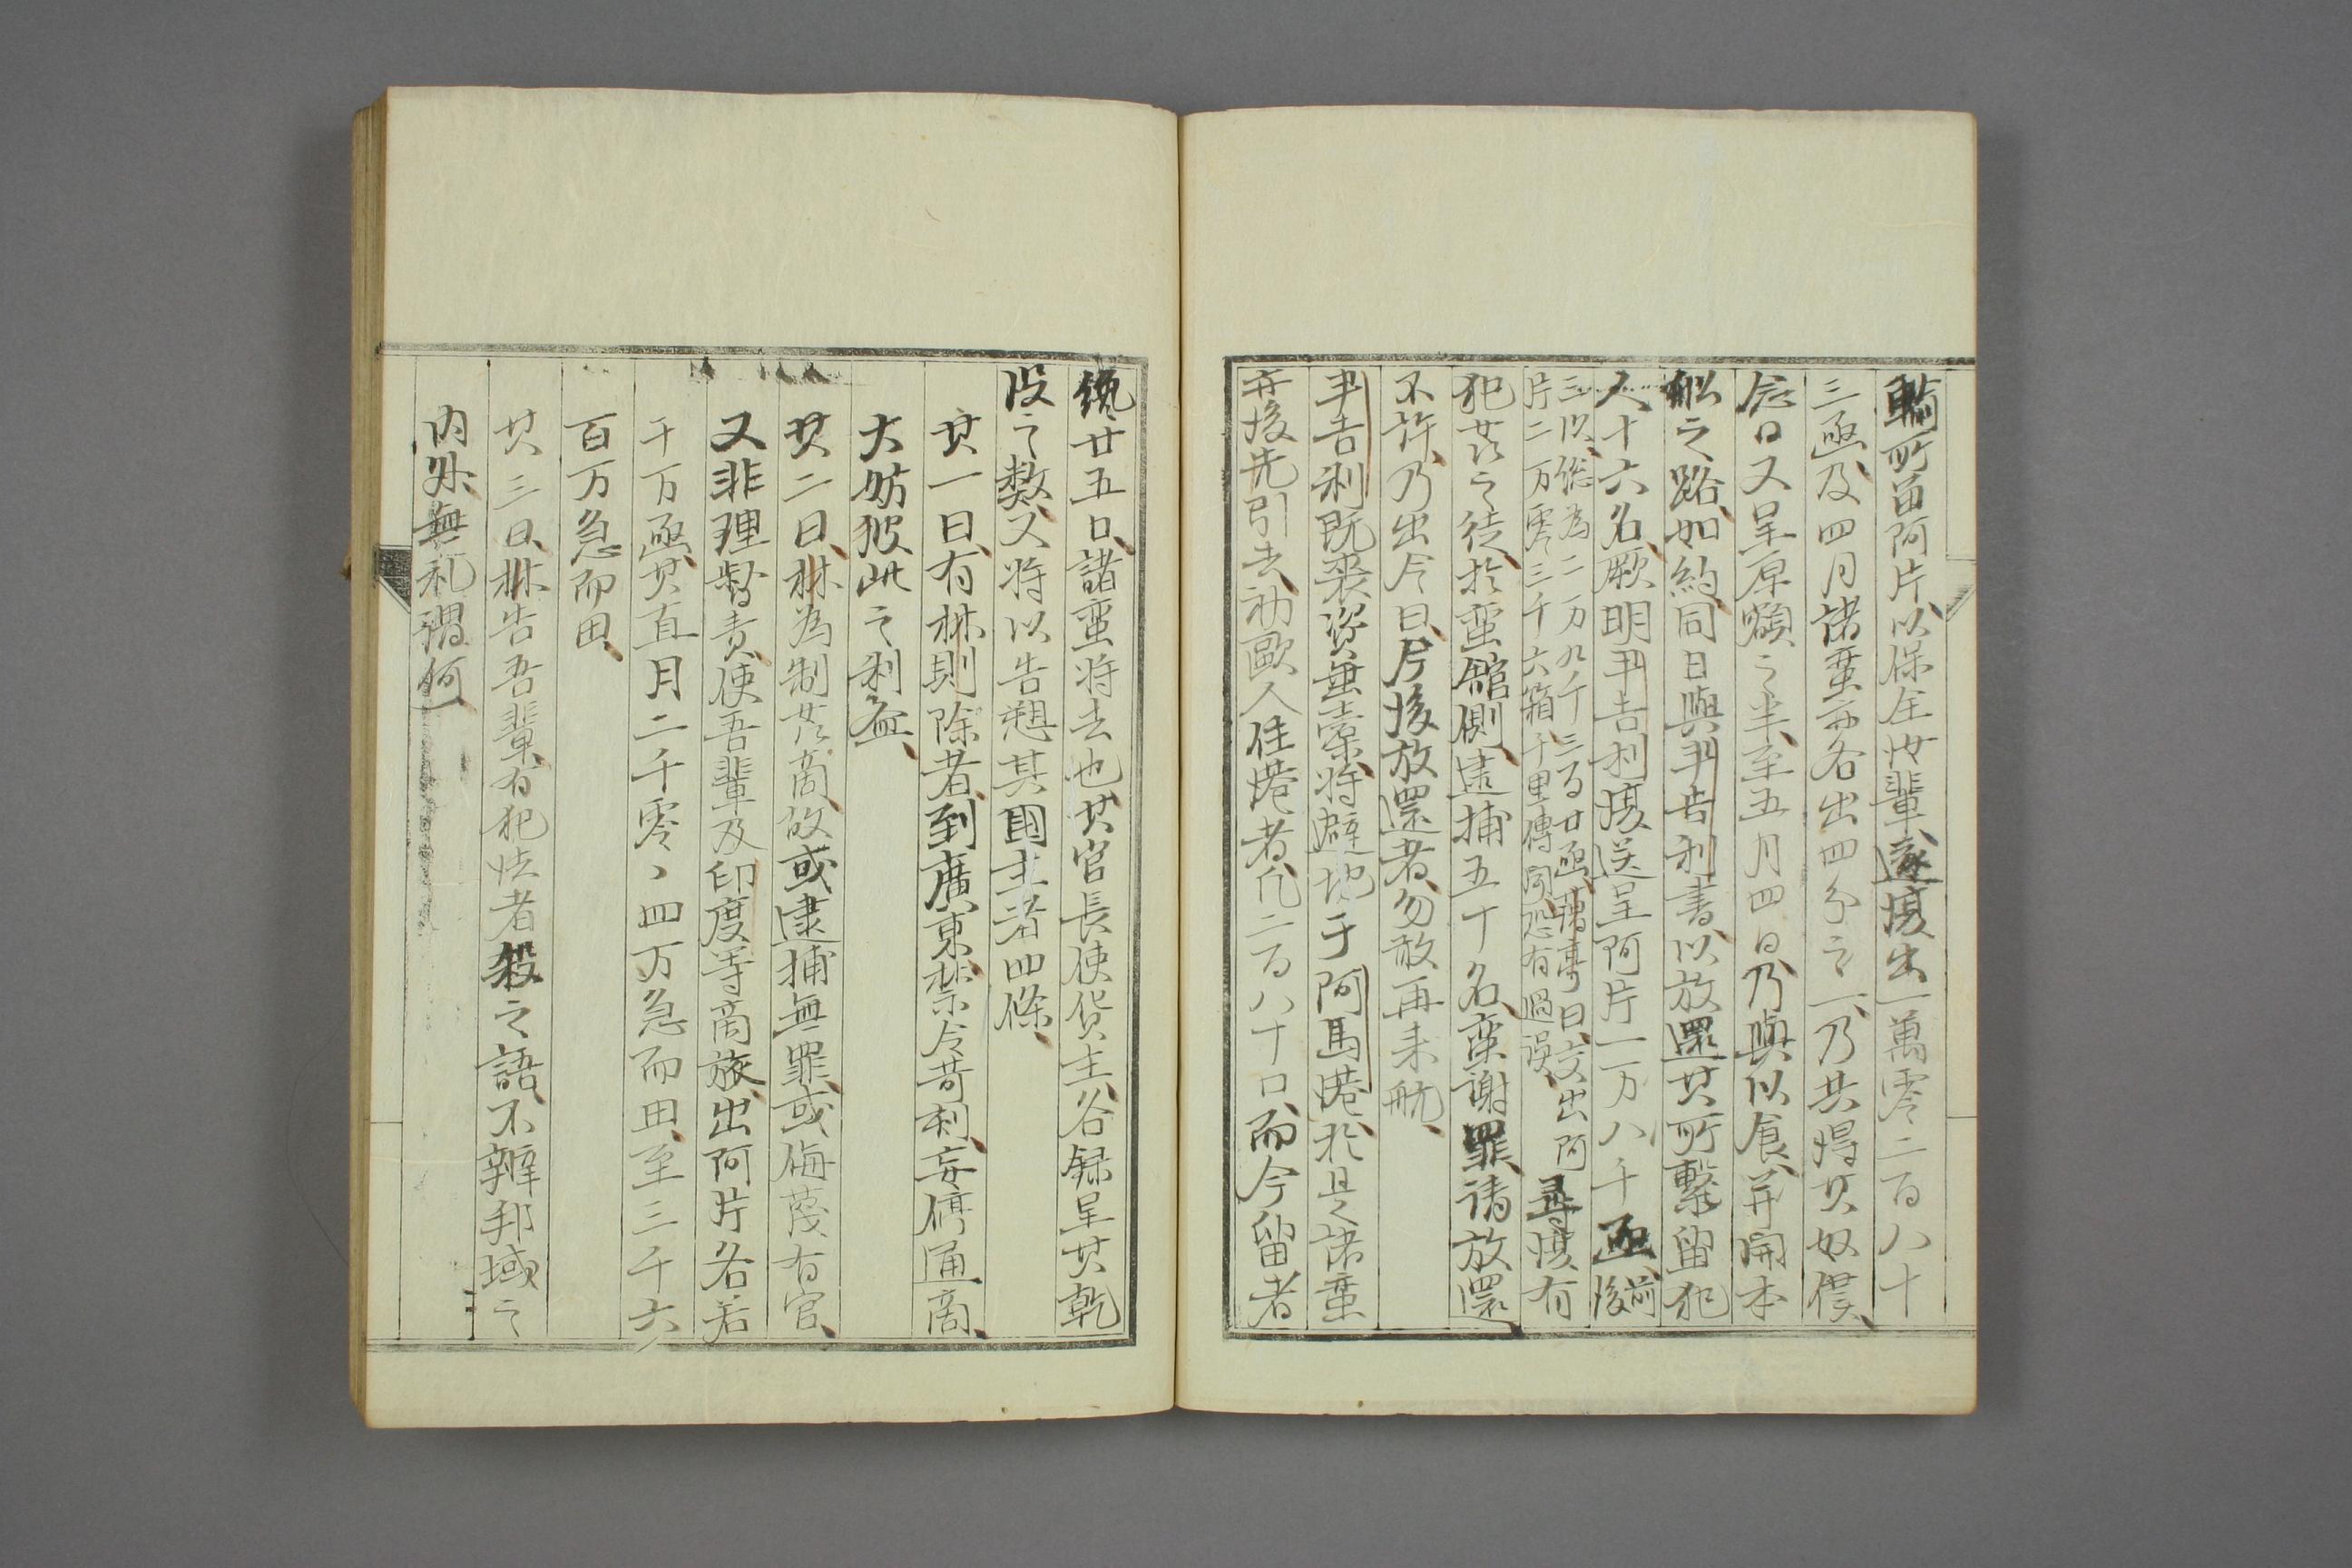 輸所留阿片、以保全汝輩、遂復出一萬零二百八十
三凾、及四月諸蛮亦各出四分之一、乃共得其奴僕、
念日又呈原額之半、至五月四日、乃與以食、并開本
船之路、如約、同日與甲吉利書、以放還其所繫留犯
人十六名、厥明甲吉利復送呈阿片一万八千凾、前後
三以総為二万九千三百廿凾、鴉事曰、交出阿
片二万零三千六箱、千里傳聞、恐有過誤、尋復有
犯其之徒、於蛮舘側、逮捕五十名、蛮謝罪、請放還、
不許、乃出令曰、片後放還者、勿敢再来航、
甲吉利既喪資無索、將避地于阿馬港、於是諸蛮
弁後先引去、初歐人住港者、凡二百八十口、而今留者
纔廿五口、諸蛮将去也、其官長使貨主、各録呈其乾
没之数、又将以告愬其国主者四條、
其一曰、有林則除者、到廣東、禁令苛利、妄停通商、
大妨彼此之利益、
其二曰、林為制其商、故或逮捕無罪、或侮蔑有官、
又非理督責、使吾輩及印度等商旅、出阿片各若
干万凾、其直月二千零〻四万急而田、至三千六
百万急而田、
其三曰、林告吾輩、有犯法者殺之語、不辨邦域之
内外、無礼謂何、